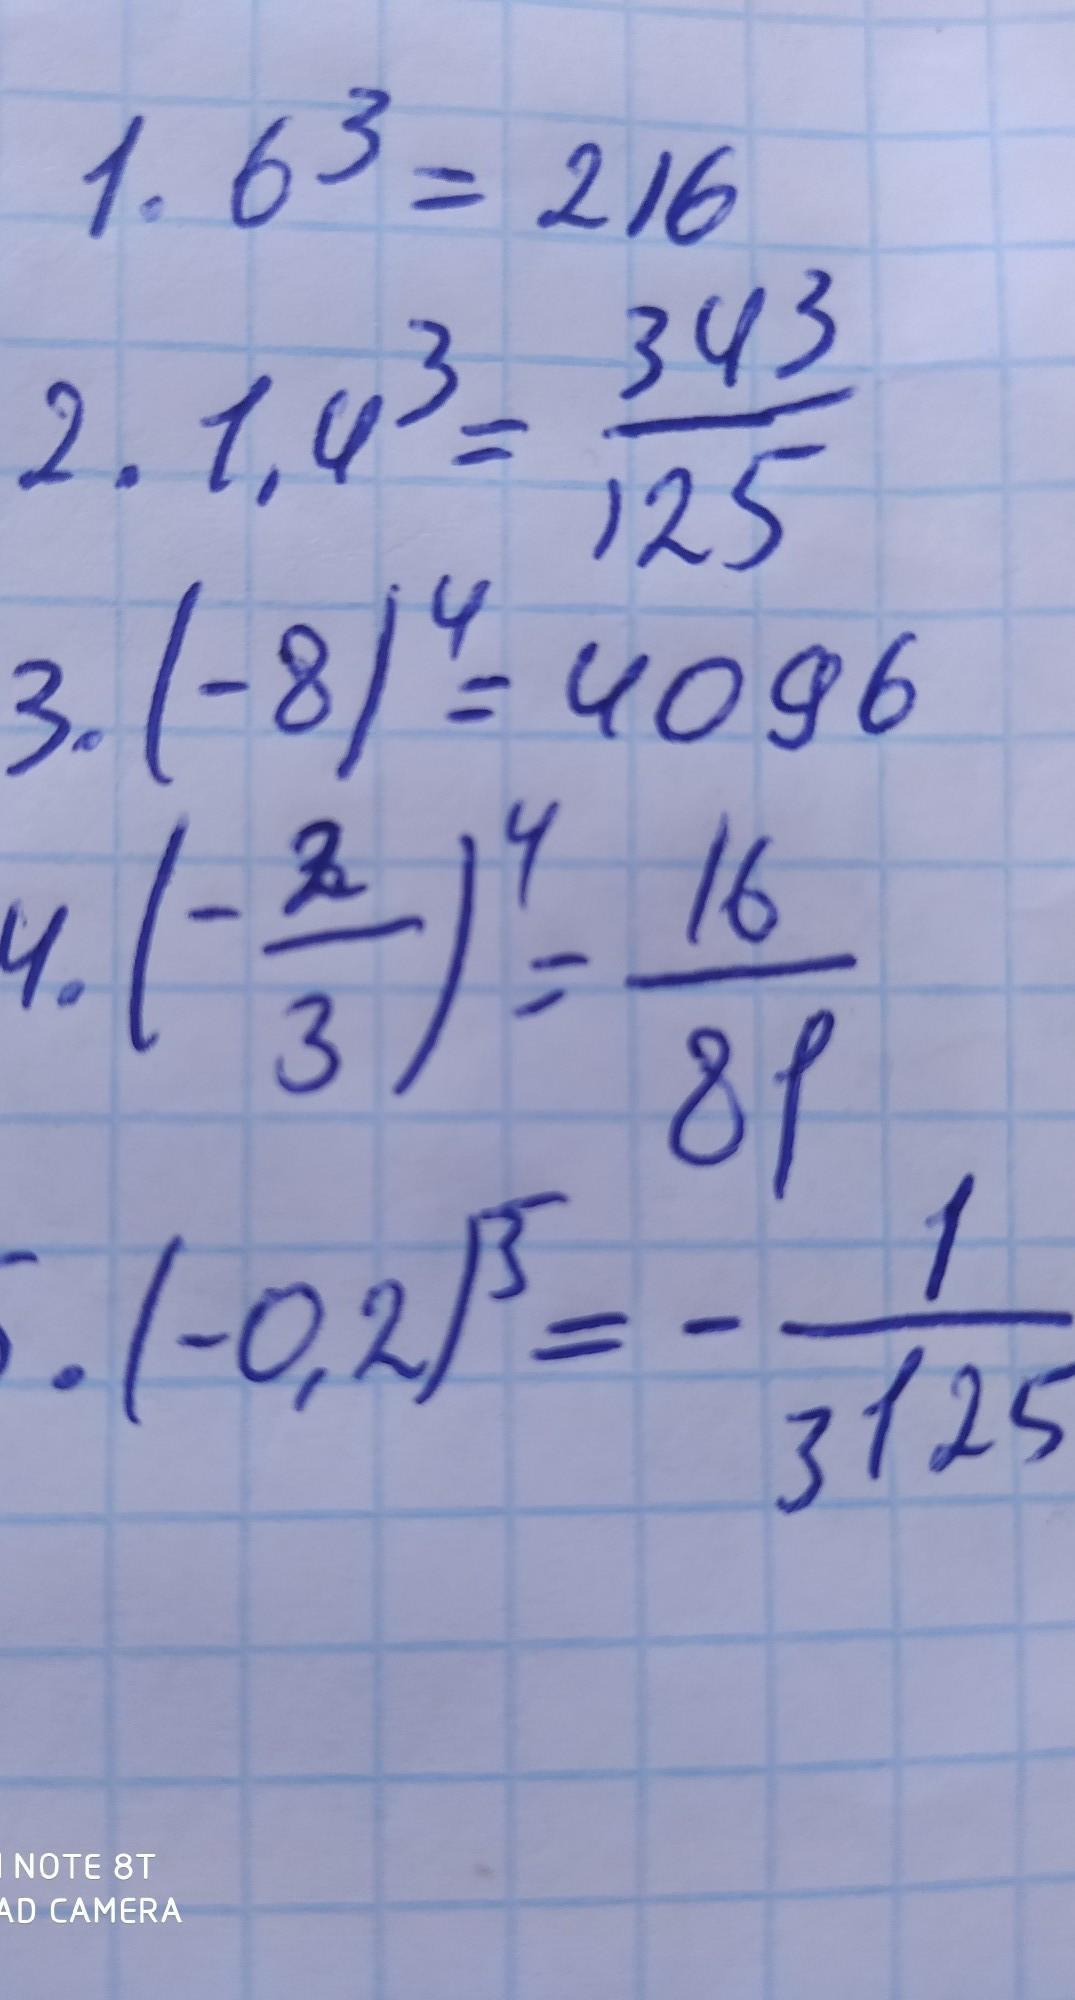 1. 6³ = 216
2. 1,4³ = 343/125
3. (-8)⁴ = 4096
4. (-2/3)⁴ = 16/81
5. (-0,2)⁵ = - 1/3125
NOTE 8T
AD CAMERA